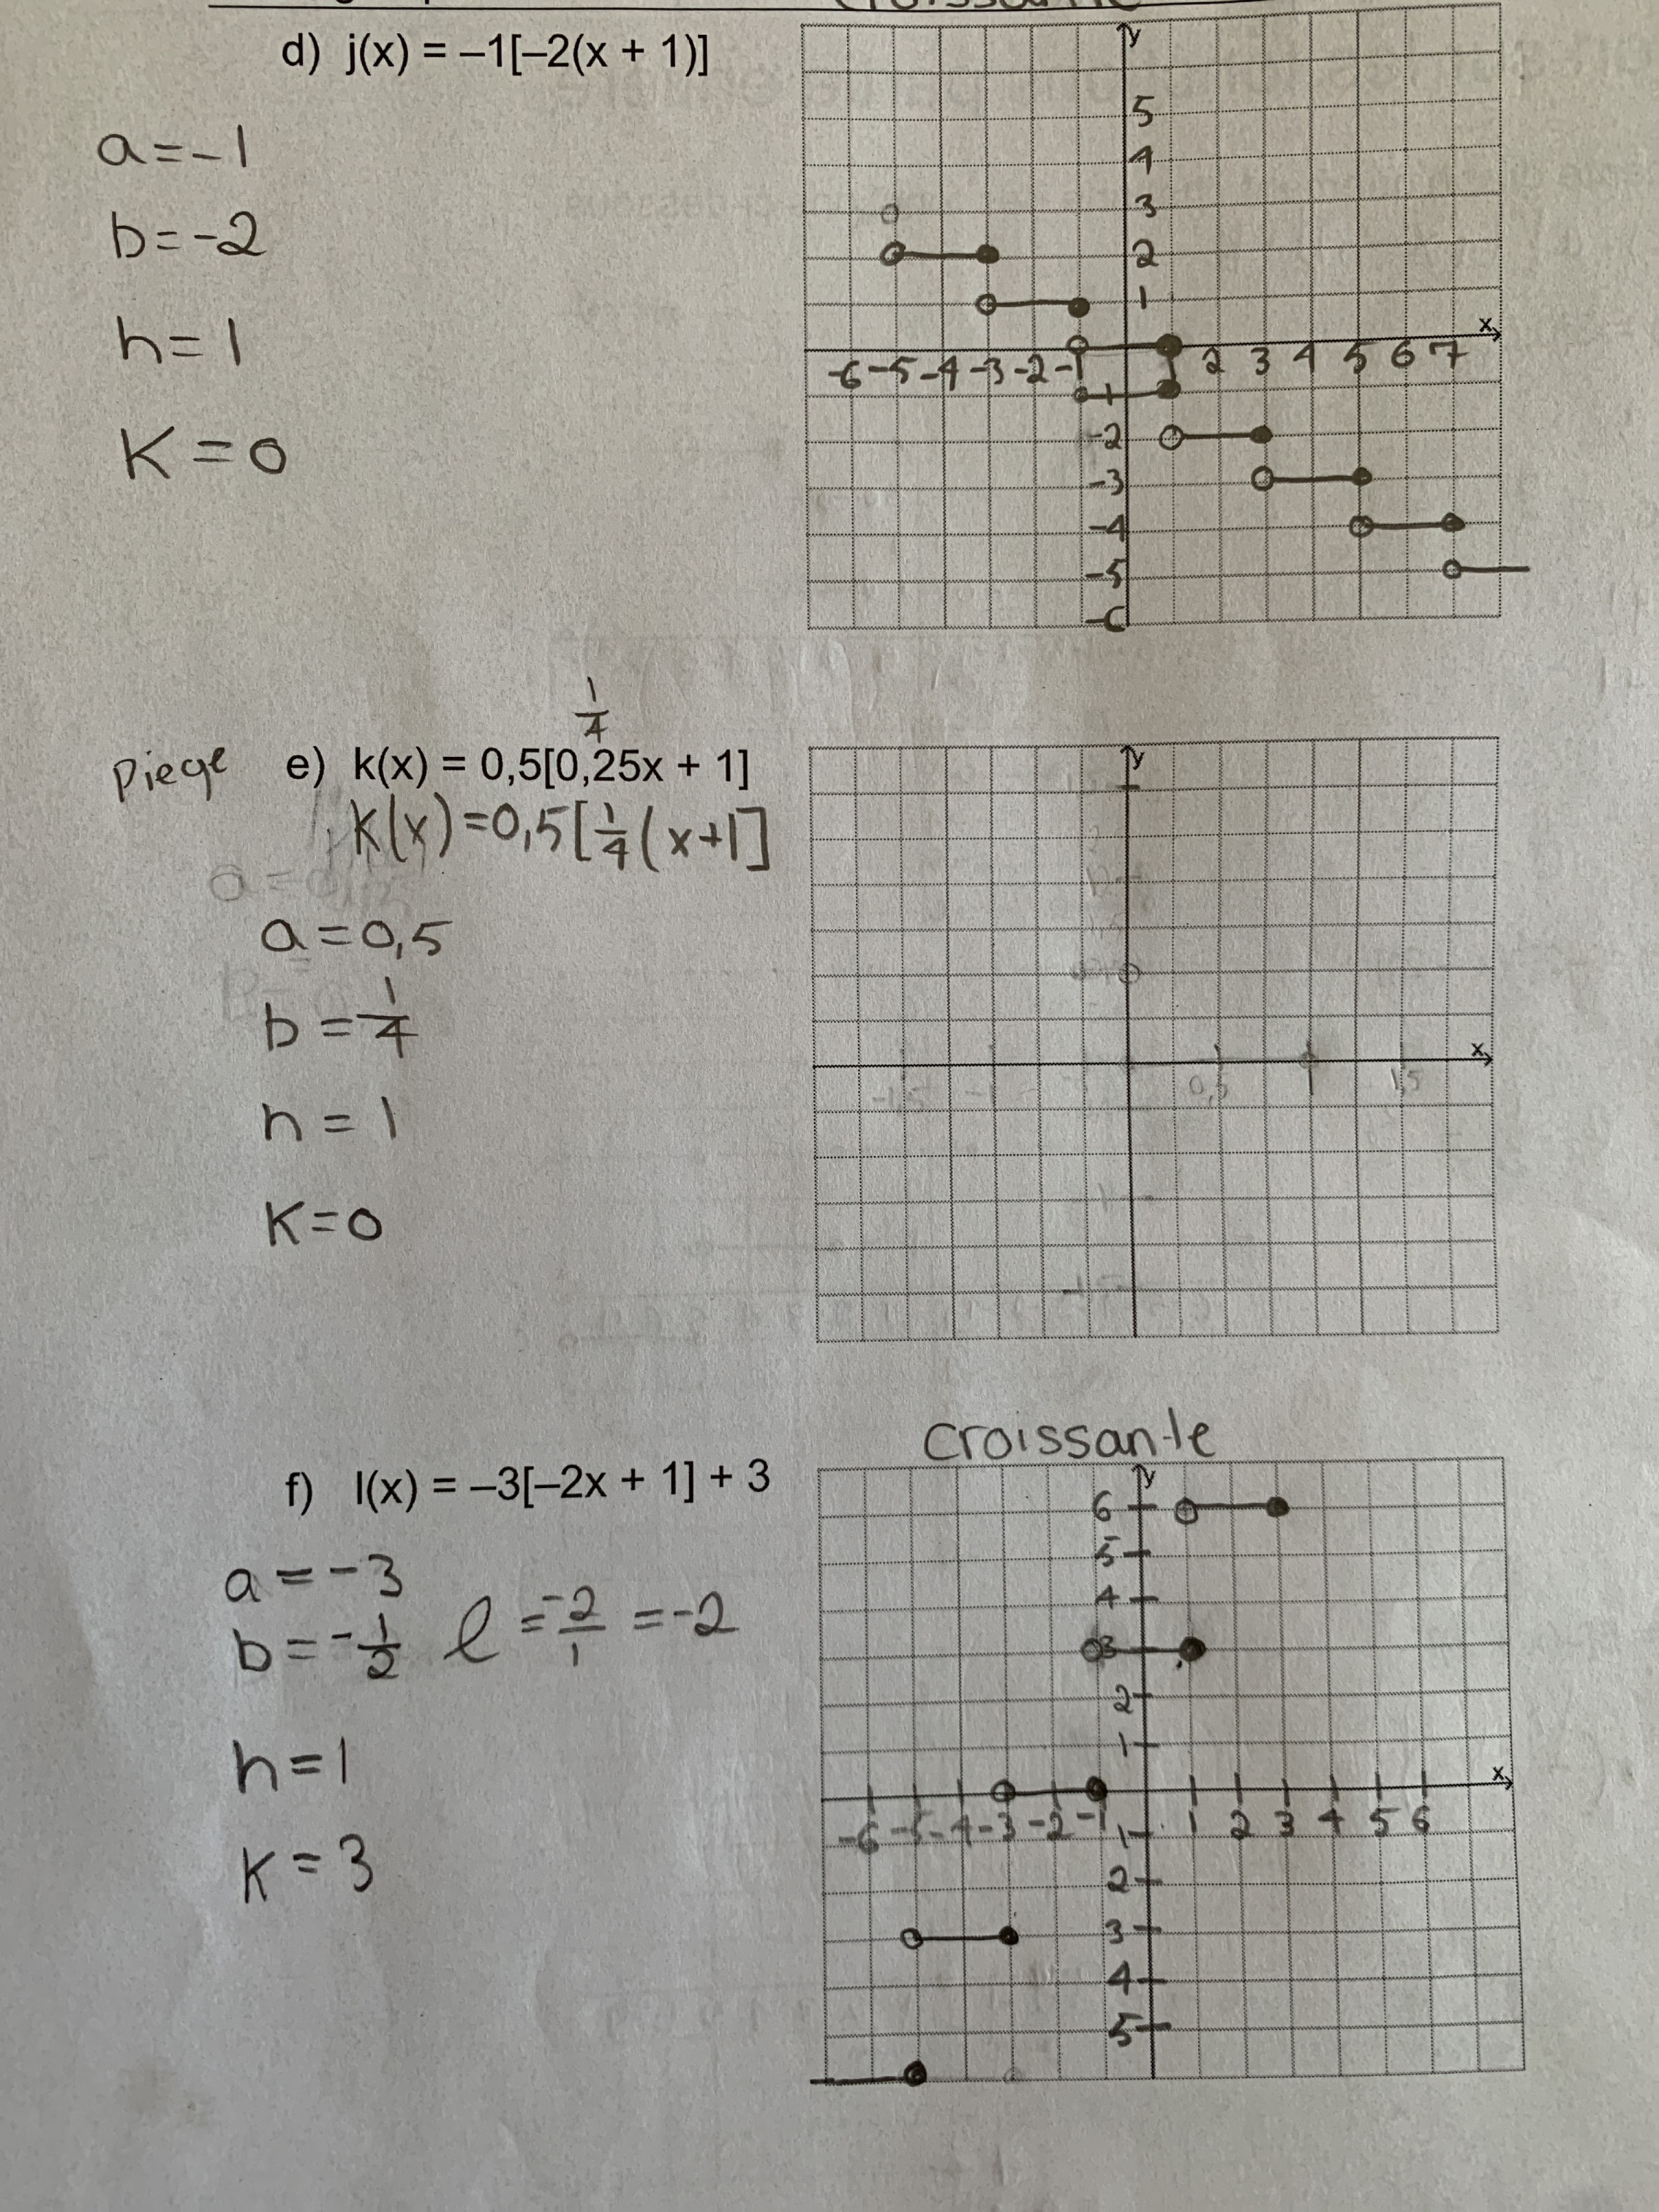 d) j(x) = –1[–2(x + 1)]
a = -1
b = -2
h = 1
K = 0
y
5
4
3
2
1
x
-6 -5 -4 -3 -2 -1 1 2 3 4 5 6 7
-2
-3
-4
-5
1/4
Piege e) k(x) = 0,5[0,25x + 1]
K(x) = 0,5[1/4(x+1]
a = 0,5
b = 1/4
h = 1
K = 0
y
x
-1,5 -1 0,5 1 1,5
Croissante
f) l(x) = –3[–2x + 1] + 3
a = -3
b = -1/2 l = -2/1 = -2
h = 1
K = 3
y
6
5
4
3
2
1
x
-6 -5 -4 -3 -2 -1 1 2 3 4 5 6
1
2
3
4
5